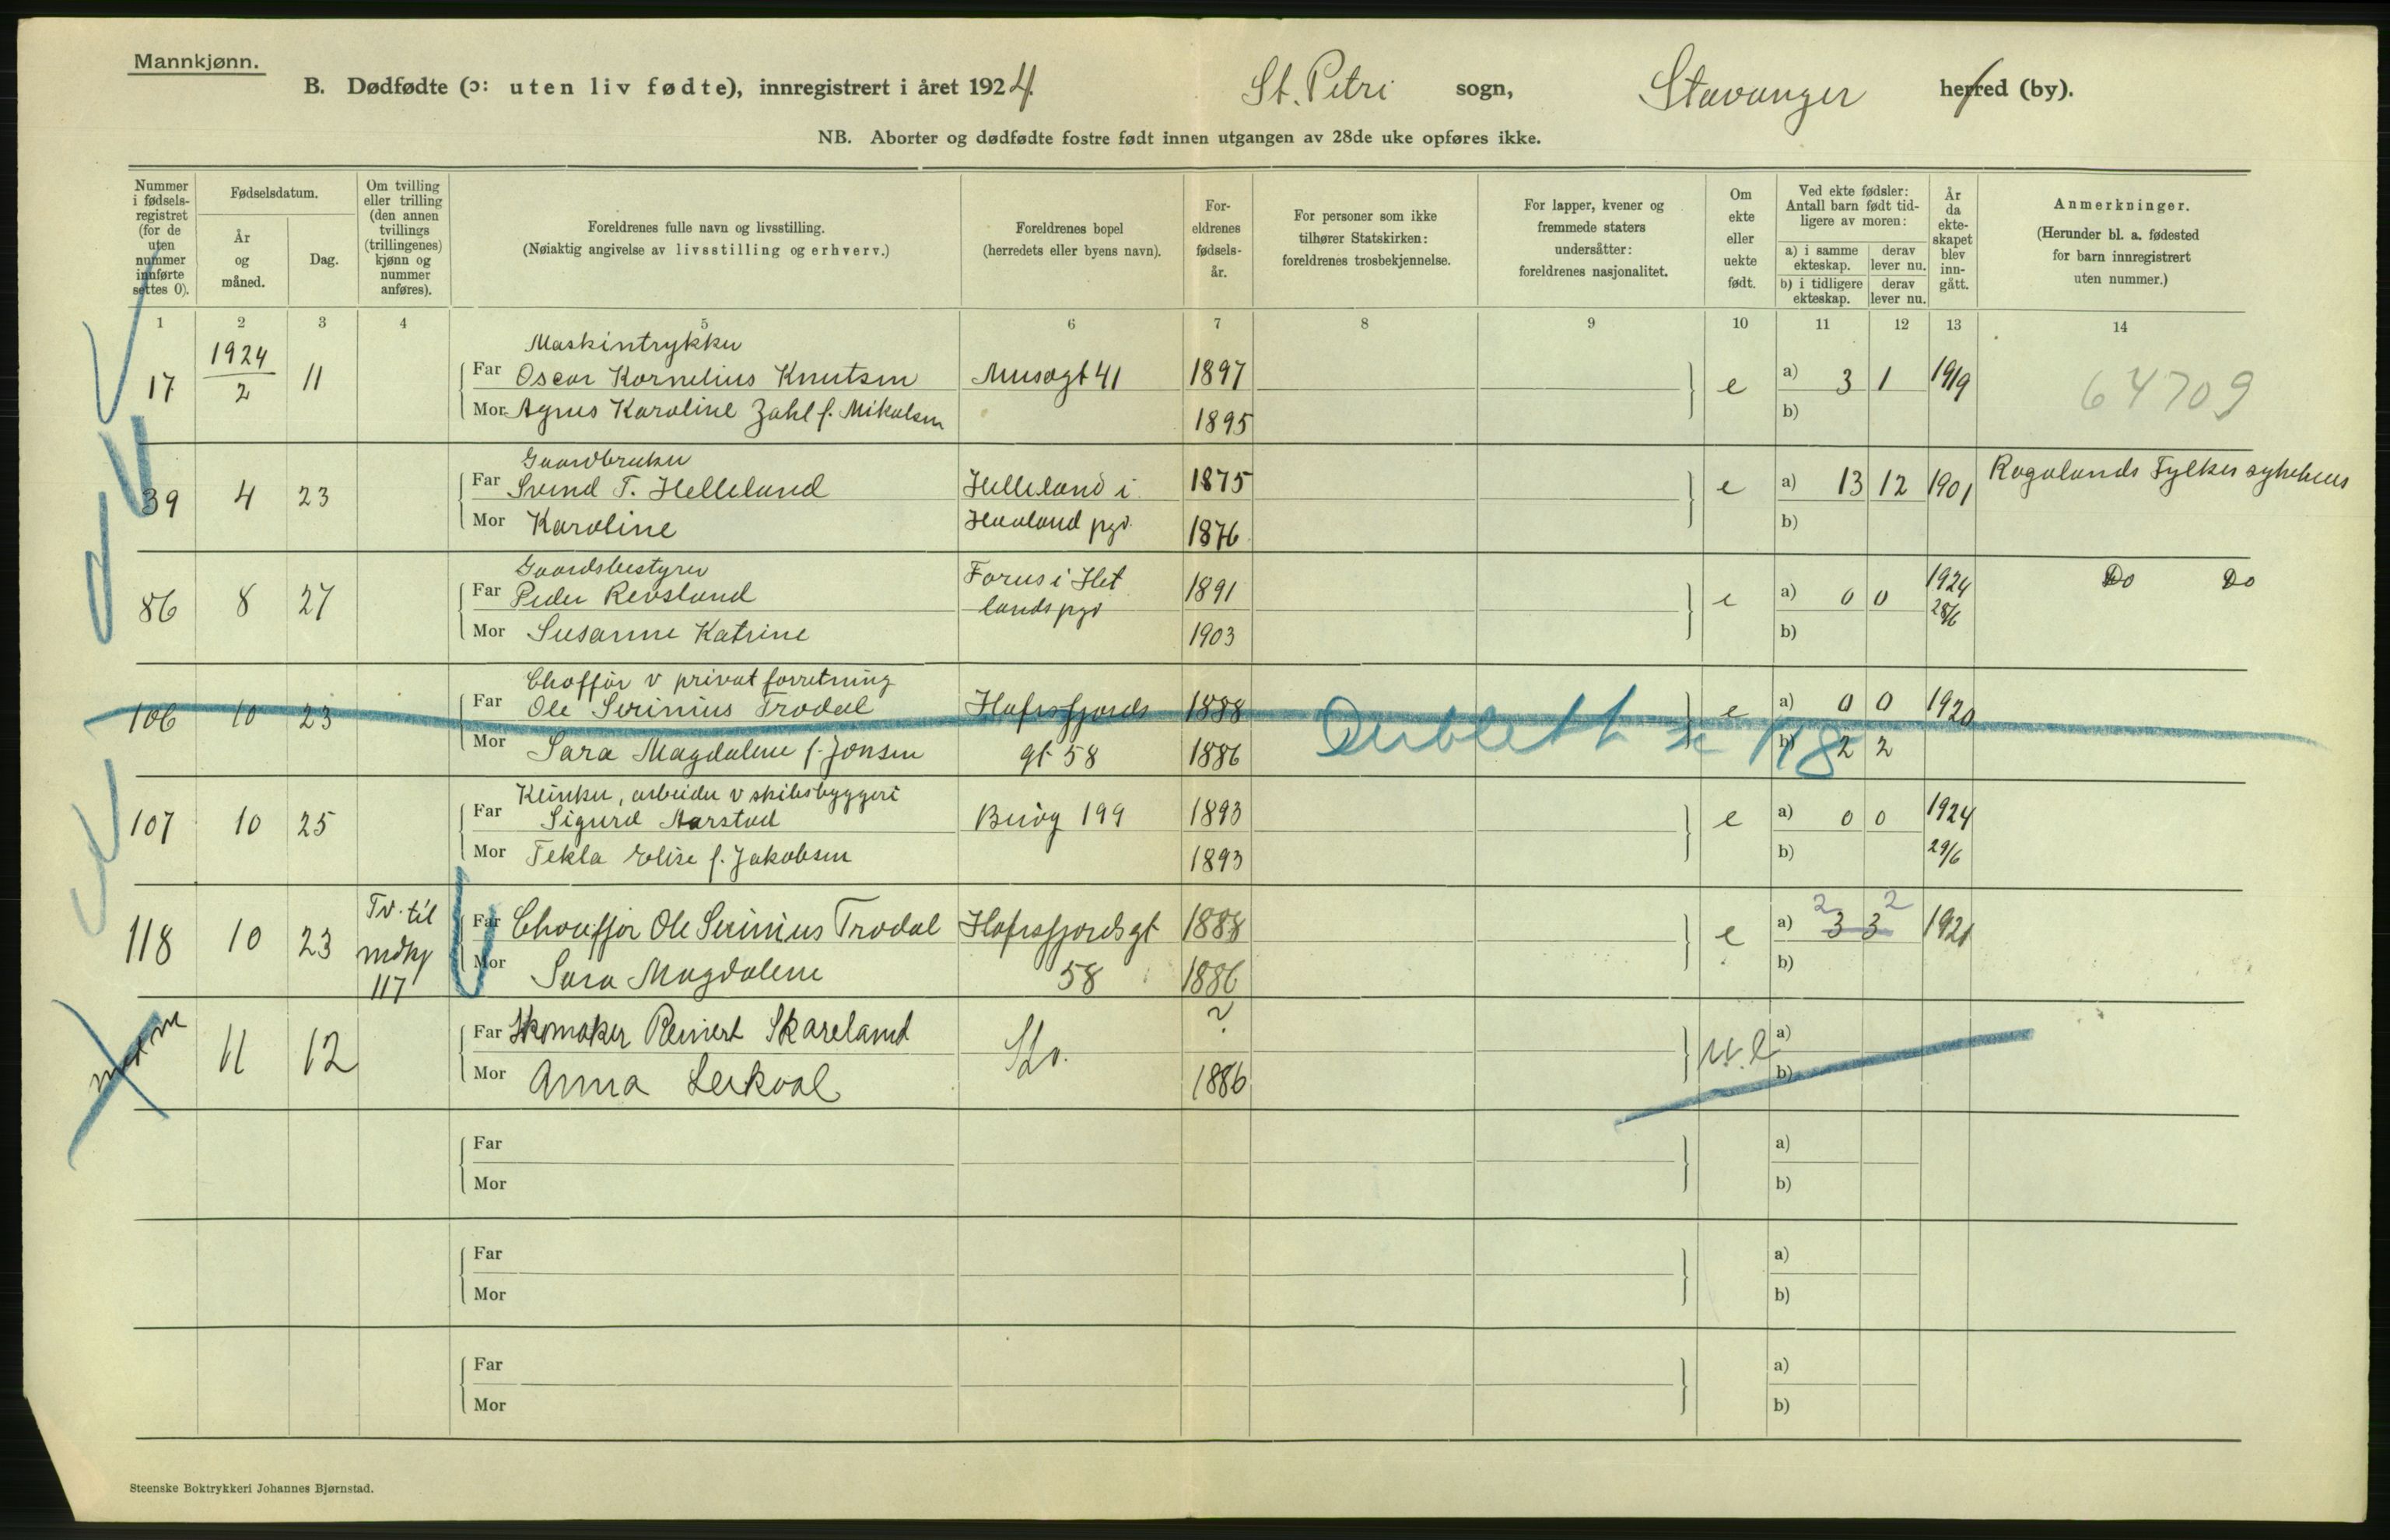 Mannkjønn.
B. Dødfødte (ɔ: uten liv fødte), innregistrert i året 1924 St. Petri sogn, Stavanger herred (by).
NB. Aborter og dødfødte fostre født innen utgangen av 28de uke opføres ikke.
Nummer i fødselsregistret (for de uten nummer innførte settes 0).
Fødselsdatum.
År og måned.
Dag.
Om tvilling eller trilling (den annen tvillings (trillingenes) kjønn og nummer anføres).
Foreldrenes fulle navn og livsstilling.
(Nøiaktig angivelse av livsstilling og erhverv.)
Foreldrenes bopel
(herredets eller byens navn).
Foreldrenes fødselsår.
For personer som ikke tilhører Statskirken: foreldrenes trosbekjennelse.
For lapper, kvener og fremmede staters undersåtter: foreldrenes nasjonalitet.
Om ekte eller uekte født.
Ved ekte fødsler: Antall barn født tidligere av moren:
a) i samme ekteskap. derav lever nu.
b) i tidligere ekteskap. derav lever nu.
År da ekteskapet blev inngått.
Anmerkninger.
(Herunder bl. a. fødested for barn innregistrert uten nummer.)
1 2 3 4 5 6 7 8 9 10 11 12 13 14
Maskintrykker
17 1924 2 11 Far Oscar Kornelius Knutsen Musegt 41 1897 e a) 3 1 1919 64709
Mor Agnes Karoline Zahl f. Mikalsen 1895 b)
Gaardbruker
39 4 23 Far Svend T. Helleland Helleland i 1875 e a) 13 12 1901 Rogalands Fylkes sykehus
Mor Karoline Haaland pgd. 1876 b)
Gaardsbestyrer
86 8 27 Far Peder Revsland Forus i Het 1891 e a) 0 0 1924 28/6 Do Do
Mor Susanne Katrine lands pgd 1903 b)
Choffør v privat forretning
106 10 23 Far Ole Serinius Trodal Hafrsfjords 1888 e a) 0 0 1920
Mor Sara Magdalene f. Jonsen gt 58 1886 Dublett 118 b) 2 2
Klinker, arbeider v skibsbyggeri
107 10 25 Far Sigurd Aarstad Buøg 199 1893 e a) 0 0 1924
Mor Tekla Elise f. Jakobsen 1893 b) 29/6
118 10 23 Tv. til mdkj 117 Far Chouffør Ole Serinius Trodal Hafrsfjordsgt 1888 e a) 2 3 3 2 1921
Mor Sara Magdalene 58 1886 b)
11 12 Far Skomaker Reinert Skareland Stv. ? u.e a)
Mor Anna Leikvol 1886 b)
Far a)
Mor b)
Far a)
Mor b)
Far a)
Mor b)
Steenske Boktrykkeri Johannes Bjørnstad.